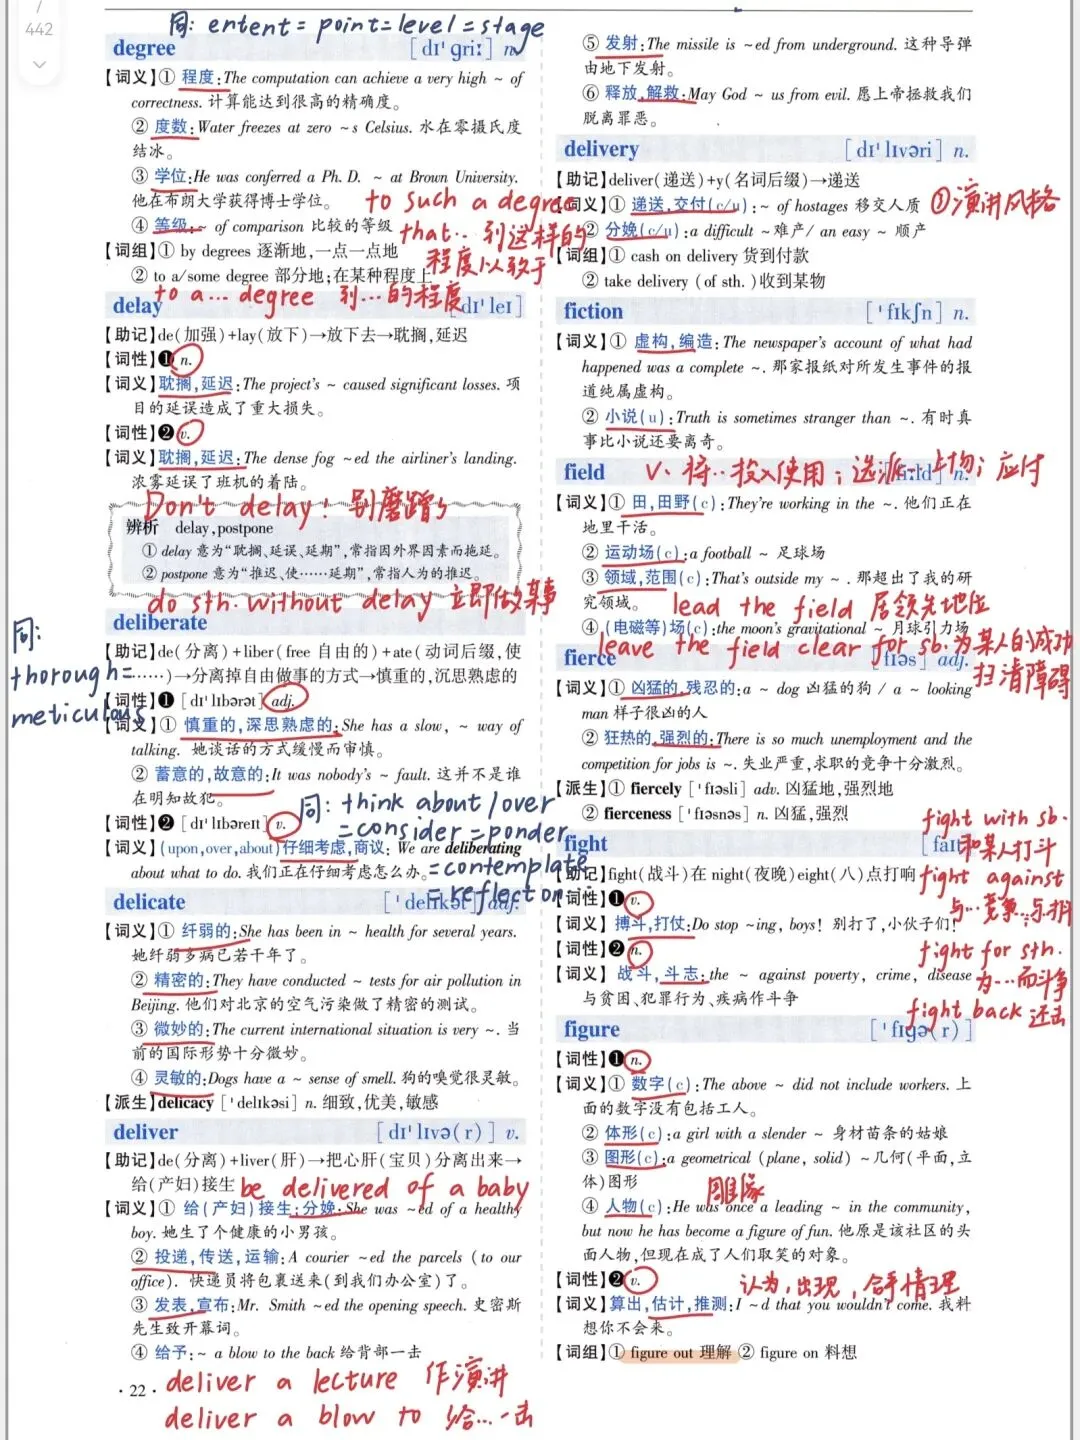 442
同: entent = point = level = stage
degree [dɪˈɡriː] n.
【词义】① 程度:The computation can achieve a very high ~ of
correctness. 计算能达到很高的精确度。
② 度数:Water freezes at zero ~s Celsius. 水在零摄氏度
结冰。
③ 学位:He was conferred a Ph. D. ~ at Brown University.
他在布朗大学获得博士学位。
④ 等级:~ of comparison 比较的等级
to such a degree
that... 到这样的
程度以致于
【词组】① by degrees 逐渐地,一点一点地
② to a/some degree 部分地;在某种程度上
to a... degree 到...的程度
delay [dɪˈleɪ]
【助记】de(加强)+lay(放下)→放下去→耽搁,延迟
【词性】❶ n.
【词义】耽搁,延迟:The project's ~ caused significant losses. 项
目的延误造成了重大损失。
【词性】❷ v.
【词义】耽搁,延迟:The dense fog ~ed the airliner's landing.
浓雾延误了班机的着陆。
Don't delay! 别磨蹭了
辨析 delay,postpone
① delay 意为“耽搁、延误、延期”,常指因外界因素而拖延。
② postpone 意为“推迟、使……延期”,常指人为的推迟。
do sth. without delay 立即做某事
deliberate
同:
thorough=
meticulous
【助记】de(分离)+liber(free 自由的)+ate(动词后缀,使
……)→分离掉自由做事的方式→慎重的,沉思熟虑的
【词性】❶ [dɪˈlɪbərət] adj.
【词义】① 慎重的,深思熟虑的:She has a slow, ~ way of
talking. 她谈话的方式缓慢而审慎。
② 蓄意的,故意的:It was nobody's ~ fault. 这并不是谁
在明知故犯。
【词性】❷ [dɪˈlɪbəreɪt] v.
同: think about/over
=consider=ponder
=contemplate
=reflect on
【词义】(upon,over,about)仔细考虑,商议: We are deliberating
about what to do. 我们正在仔细考虑怎么办。
delicate [ˈdelɪkət] adj.
【词义】① 纤弱的:She has been in ~ health for several years.
她纤弱多病已若干年了。
② 精密的:They have conducted ~ tests for air pollution in
Beijing. 他们对北京的空气污染做了精密的测试。
③ 微妙的:The current international situation is very ~. 当
前的国际形势十分微妙。
④ 灵敏的:Dogs have a ~ sense of smell. 狗的嗅觉很灵敏。
【派生】delicacy [ˈdelɪkəsi] n. 细致,优美,敏感
deliver [dɪˈlɪvə(r)] v.
【助记】de(分离)+liver(肝)→把心肝(宝贝)分离出来→
给(产妇)接生
be delivered of a baby
【词义】① 给(产妇)接生;分娩:She was ~ed of a healthy
boy. 她生了个健康的小男孩。
② 投递,传送,运输:A courier ~ed the parcels (to our
office). 快递员将包裹送来(到我们办公室)了。
③ 发表,宣布:Mr. Smith ~ed the opening speech. 史密斯
先生致开幕词。
④ 给予:~ a blow to the back 给背部一击
· 22 ·
deliver a lecture 作演讲
deliver a blow to 给...一击
⑤ 发射:The missile is ~ed from underground. 这种导弹
由地下发射。
⑥ 释放,解救:May God ~ us from evil. 愿上帝拯救我们
脱离罪恶。
delivery [dɪˈlɪvəri] n.
【助记】deliver(递送)+y(名词后缀)→递送
【词义】① 递送,交付(c/u):~ of hostages 移交人质
③演讲风格
② 分娩(c/u):a difficult ~难产/ an easy ~ 顺产
【词组】① cash on delivery 货到付款
② take delivery (of sth. )收到某物
fiction [ˈfɪkʃn] n.
【词义】① 虚构,编造:The newspaper's account of what had
happened was a complete ~. 那家报纸对所发生事件的报
道纯属虚构。
② 小说(u):Truth is sometimes stranger than ~. 有时真
事比小说还要离奇。
field n.
v. 将...投入使用;选派...上场;应付
【词义】① 田,田野(c):They're working in the ~. 他们正在
地里干活。
② 运动场(c):a football ~ 足球场
③ 领域,范围(c):That's outside my ~ . 那超出了我的研
究领域。
lead the field 居领先地位
④ (电磁等)场(c):the moon's gravitational ~ 月球引力场
leave the field clear for sb. 为某人的成功
扫清障碍
fierce [fɪəs] adj.
【词义】① 凶猛的,残忍的:a ~ dog 凶猛的狗 / a ~ looking
man 样子很凶的人
② 狂热的,强烈的:There is so much unemployment and the
competition for jobs is ~. 失业严重,求职的竞争十分激烈。
【派生】① fiercely [ˈfɪəsli] adv. 凶猛地,强烈地
② fierceness [ˈfɪəsnəs] n. 凶猛,强烈
fight [faɪt]
fight with sb.
和某人打斗
【助记】fight(战斗)在 night(夜晚)eight(八)点打响
fight against
【词性】❶ v.
【词义】搏斗,打仗:Do stop ~ing, boys! 别打了,小伙子们!
【词性】❷ n.
fight for sth.
为...而斗争
【词义】战斗,斗志:the ~ against poverty, crime, disease
与贫困、犯罪行为、疾病作斗争
fight back 还击
figure [ˈfɪɡə(r)]
【词性】❶ n.
【词义】① 数字(c):The above ~ did not include workers. 上
面的数字没有包括工人。
② 体形(c):a girl with a slender ~ 身材苗条的姑娘
③ 图形(c):a geometrical (plane, solid) ~几何(平面,立
体)图形
雕像
④ 人物(c):He was once a leading ~ in the community,
but now he has become a figure of fun. 他原是该社区的头
面人物,但现在成了人们取笑的对象。
【词性】❷ v.
认为,出现,合乎情理
【词义】算出,估计,推测:I ~d that you wouldn't come. 我料
想你不会来。
【词组】① figure out 理解 ② figure on 料想